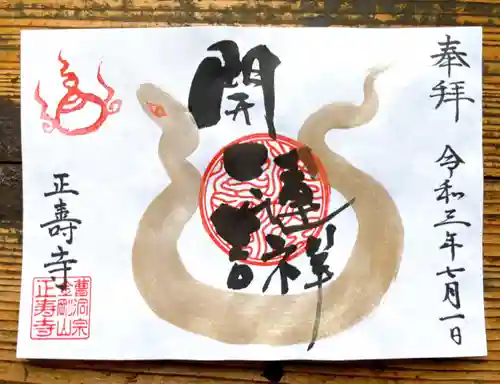 奉拝
令和三年七月一日
開運
吉祥
正壽寺
曹洞宗
金剛山
正寿寺